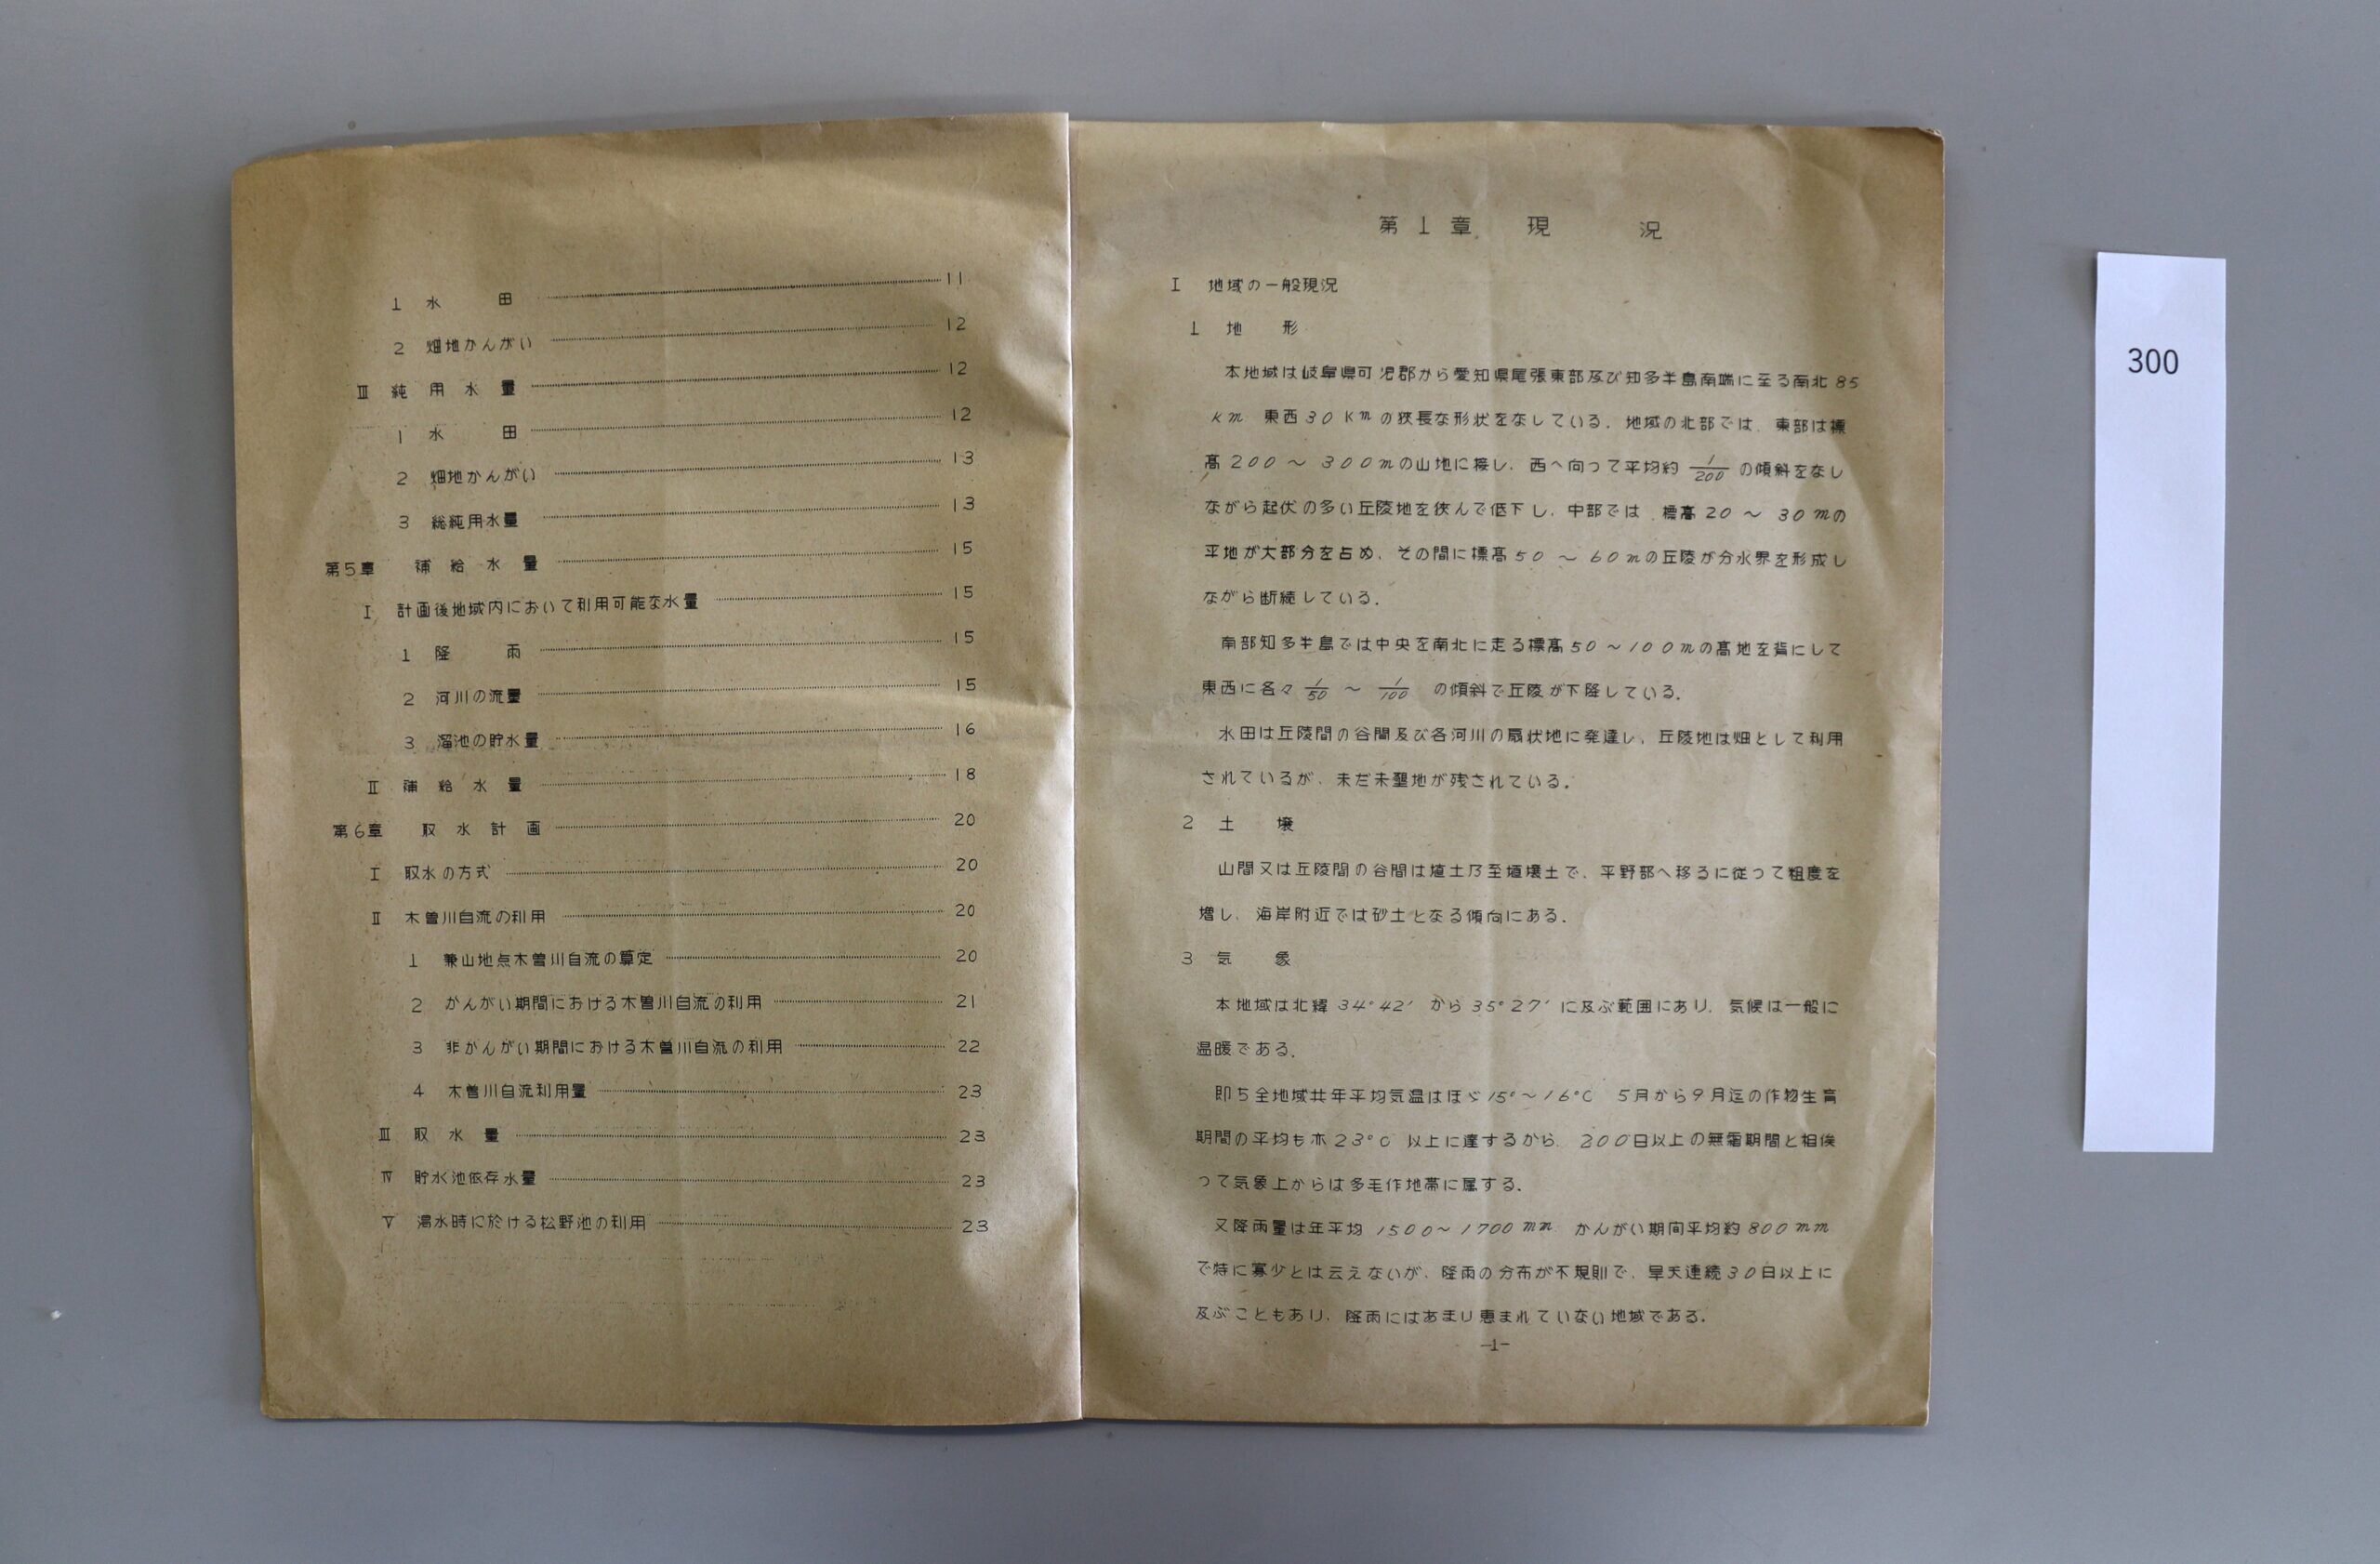 1 水 田 ………… 11
2 畑地かんがい ………… 12
Ⅲ 純 用 水 量 ………… 12
1 水 田 ………… 12
2 畑地かんがい ………… 13
3 総純用水量 ………… 13
第5章 補 給 水 量 ………… 15
Ⅰ 計画後地域内において利用可能な水量 ………… 15
1 降 雨 ………… 15
2 河川の流量 ………… 15
3 溜池の貯水量 ………… 16
Ⅱ 補 給 水 量 ………… 18
第6章 取 水 計 画 ………… 20
Ⅰ 取水の方式 ………… 20
Ⅱ 木曽川自流の利用 ………… 20
1 兼山地点木曽川自流の算定 ………… 20
2 かんがい期間における木曽川自流の利用 ………… 21
3 非かんがい期間における木曽川自流の利用 ………… 22
4 木曽川自流利用量 ………… 23
Ⅲ 取 水 量 ………… 23
Ⅳ 貯水池依存水量 ………… 23
Ⅴ 渇水時に於ける松野池の利用 ………… 23
第1章 現 況
Ⅰ 地域の一般現況
1 地 形
本地域は岐阜県可児郡から愛知県尾張東部及び知多半島南端に至る南北85
Km 東西30Kmの狭長な形状をなしている。地域の北部では、東部は標
高200～300mの山地に接し、西へ向って平均約1/200の傾斜をなし
ながら起伏の多い丘陵地を挟んで低下し、中部では、標高20～30mの
平地が大部分を占め、その間に標高50～60mの丘陵が分水界を形成し
ながら断続している。
南部知多半島では中央を南北に走る標高50～100mの高地を背にして
東西に各々1/50～1/100の傾斜で丘陵が下降している。
水田は丘陵間の谷間及び各河川の扇状地に発達し、丘陵地は畑として利用
されているが、未だ未墾地が残されている。
2 土 壌
山間又は丘陵間の谷間は埴土乃至埴壌土で、平野部へ移るに従って粗度を
増し、海岸附近では砂土となる傾向にある。
3 気 象
本地域は北緯34°42′から35°27′に及ぶ範囲にあり、気候は一般に
温暖である。
即ち全地域共年平均気温はほゞ15°～16°C 5月から9月迄の作物生育
期間の平均も亦23°C以上に達するから、200日以上の無霜期間と相俟
って気象上からは多毛作地帯に属する。
又降雨量は年平均1500～1700mm かんがい期間平均約800mm
で特に寡少とは云えないが、降雨の分布が不規則で、旱天連続30日以上に
及ぶこともあり、降雨にはあまり恵まれていない地域である。
—1—
300